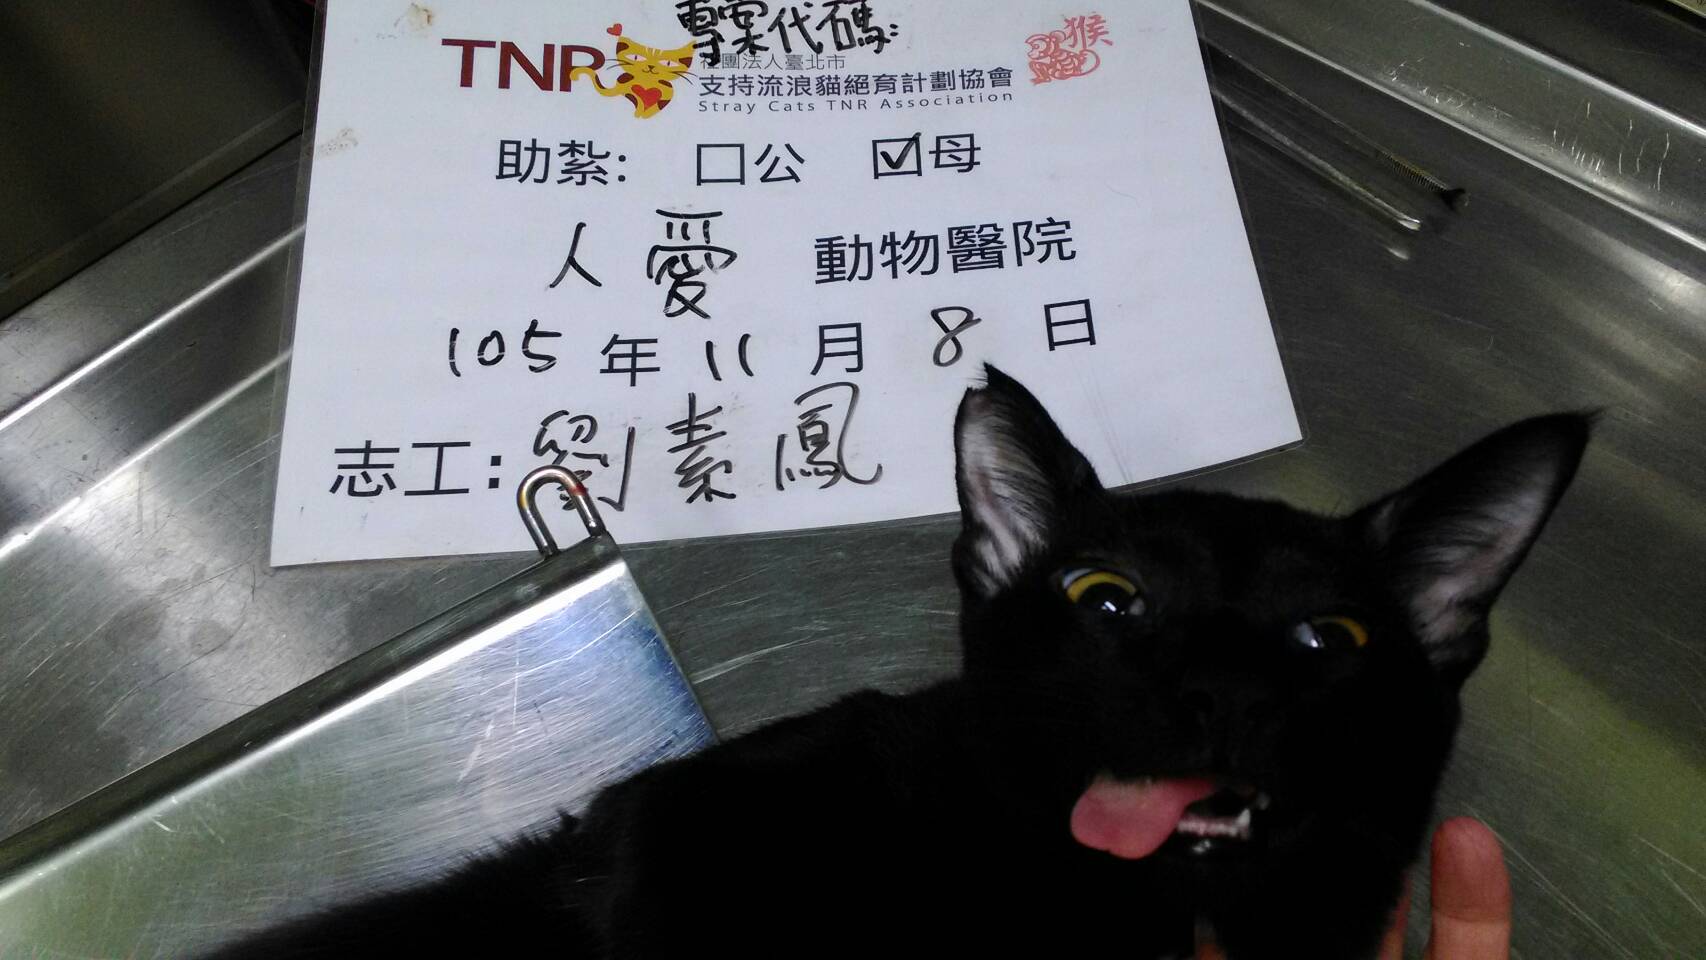 專案代碼:
TNR
社團法人臺北市
支持流浪貓絕育計劃協會
Stray Cats TNR Association
猴
助紮: □公 ☑母
人愛 動物醫院
105年11月8日
志工:劉素鳳